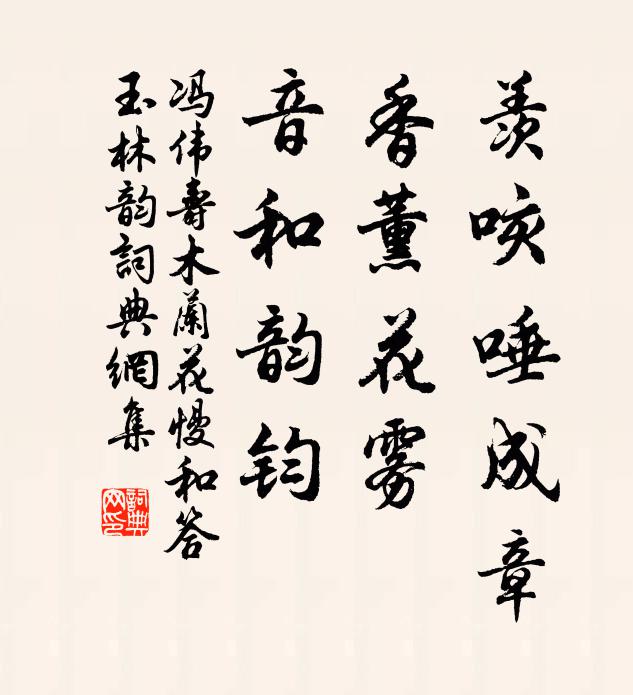 羡咳唾成章
香薰花雾
音和韵钧
冯伟寿木兰花慢和答
玉林韵詞典網集
詞典网印